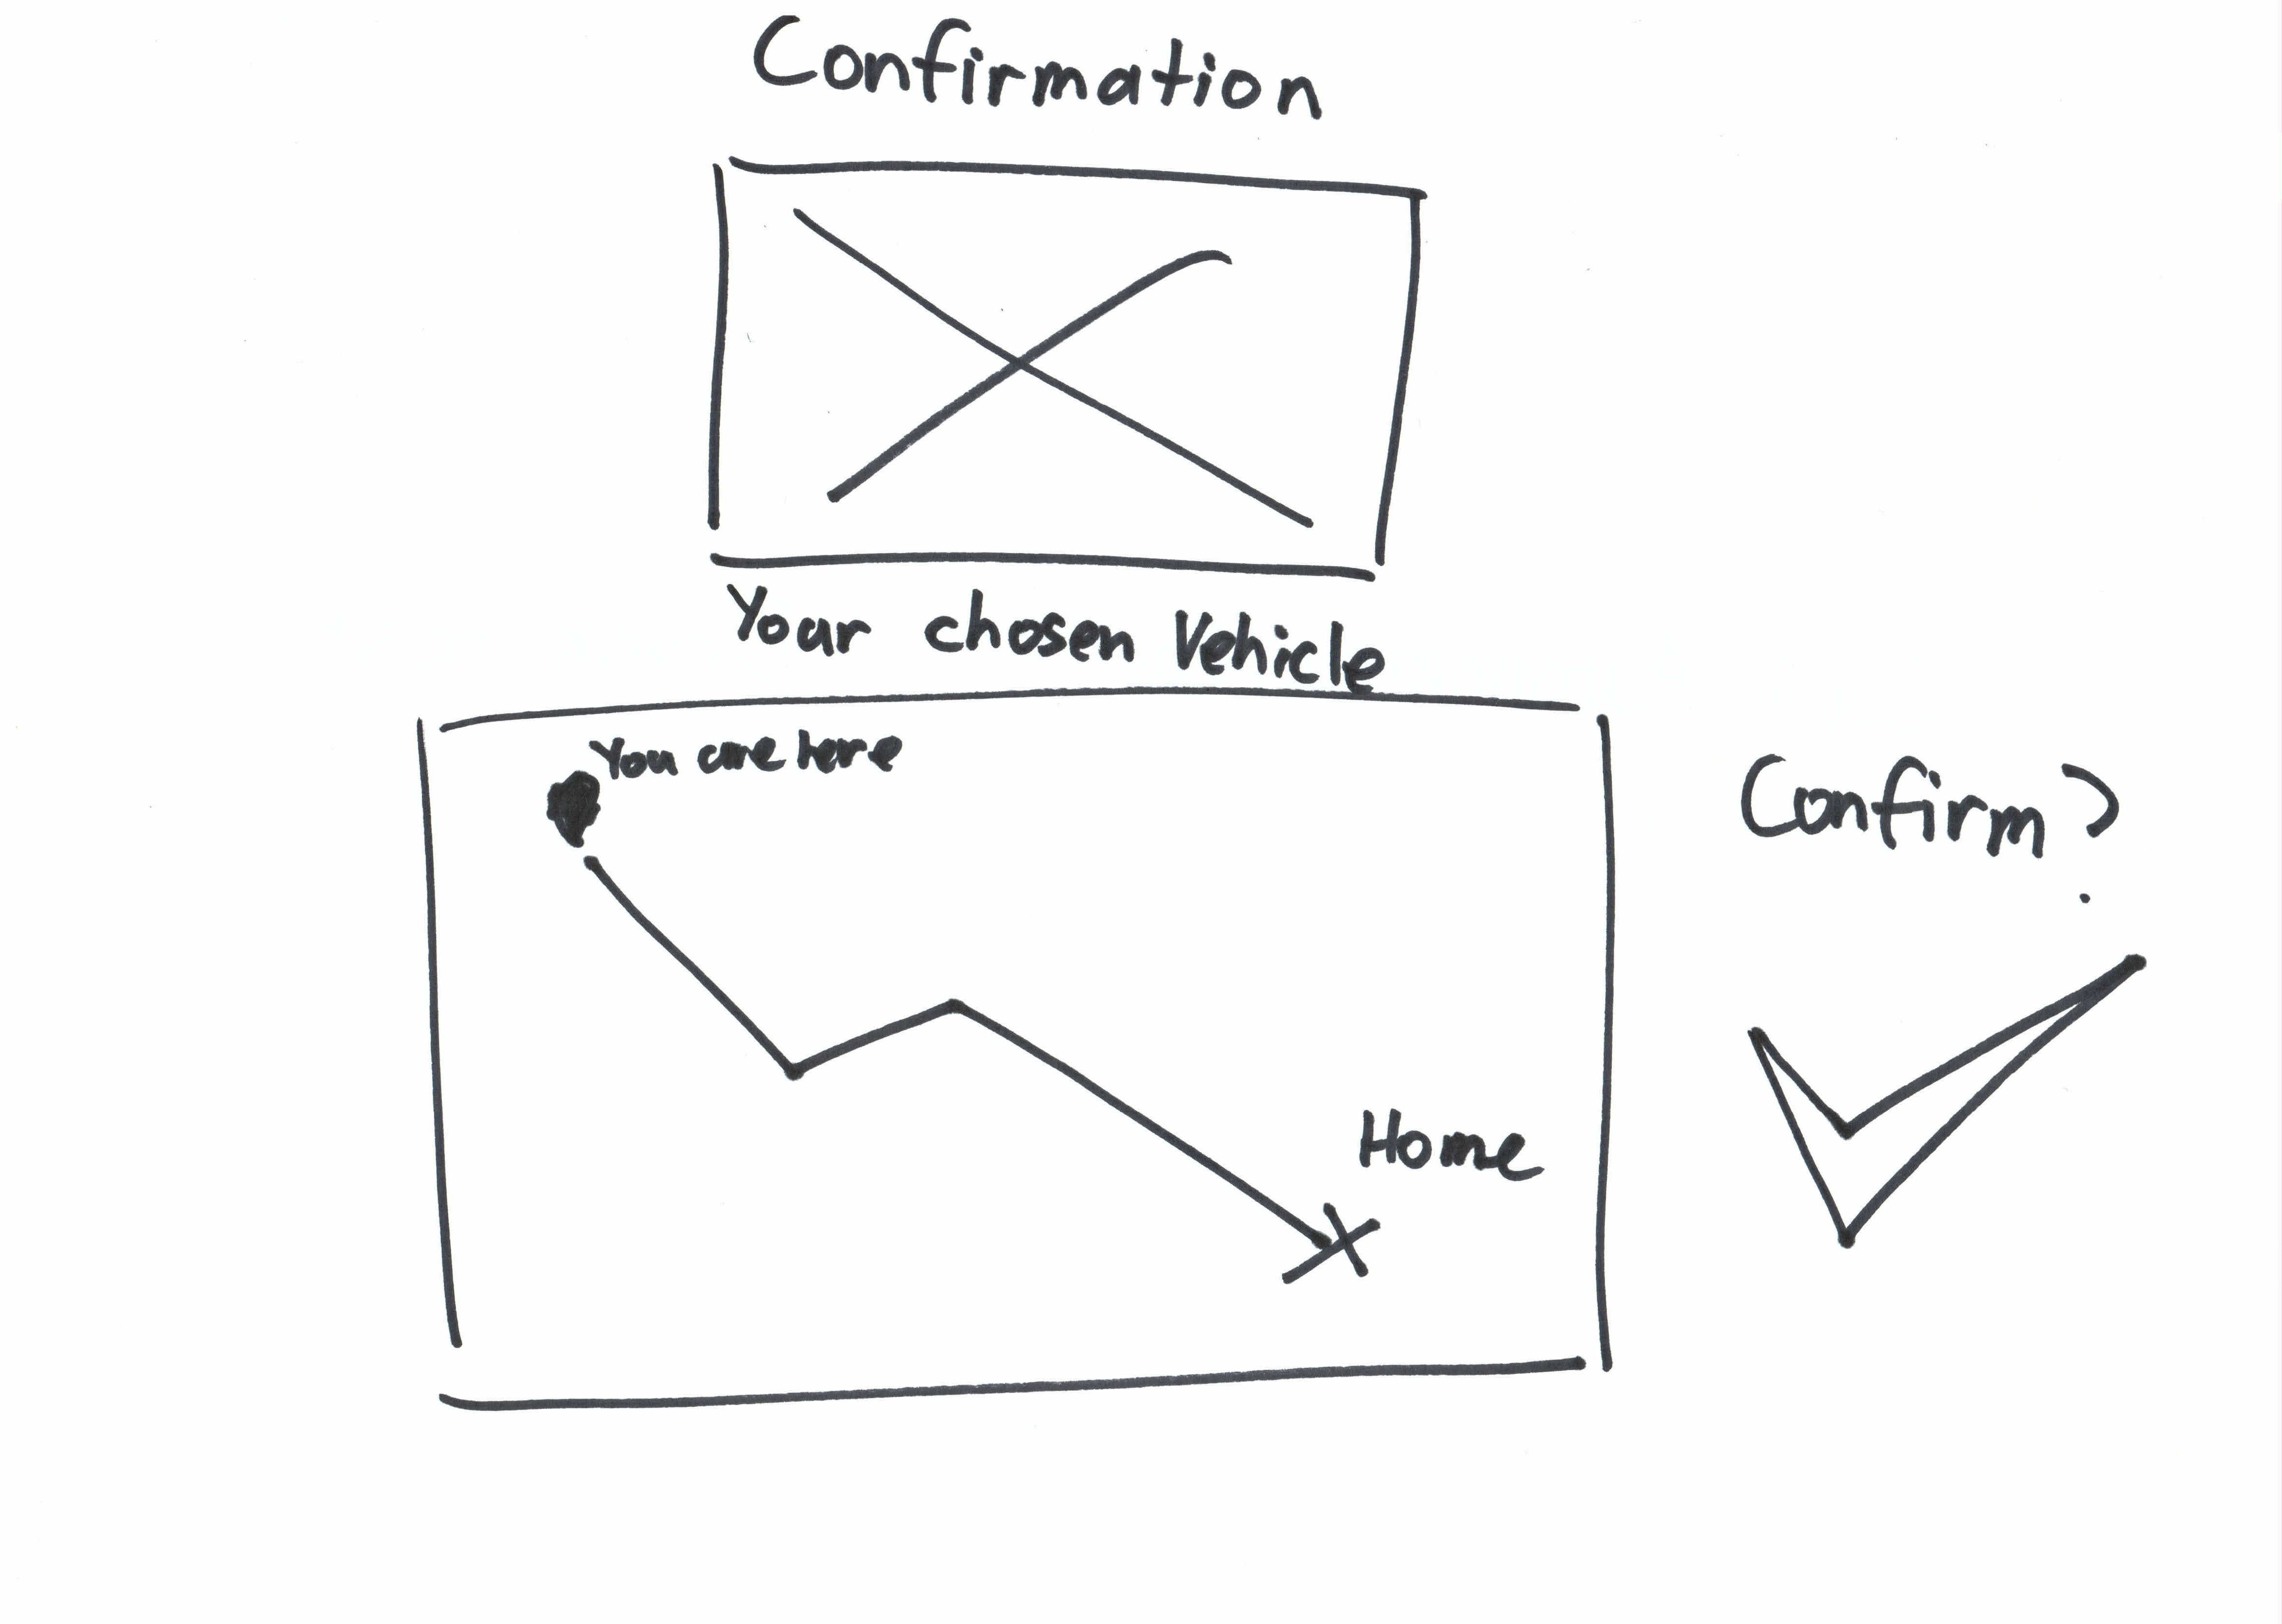 Confirmation
Your chosen Vehicle
You are here
Confirm?
Home